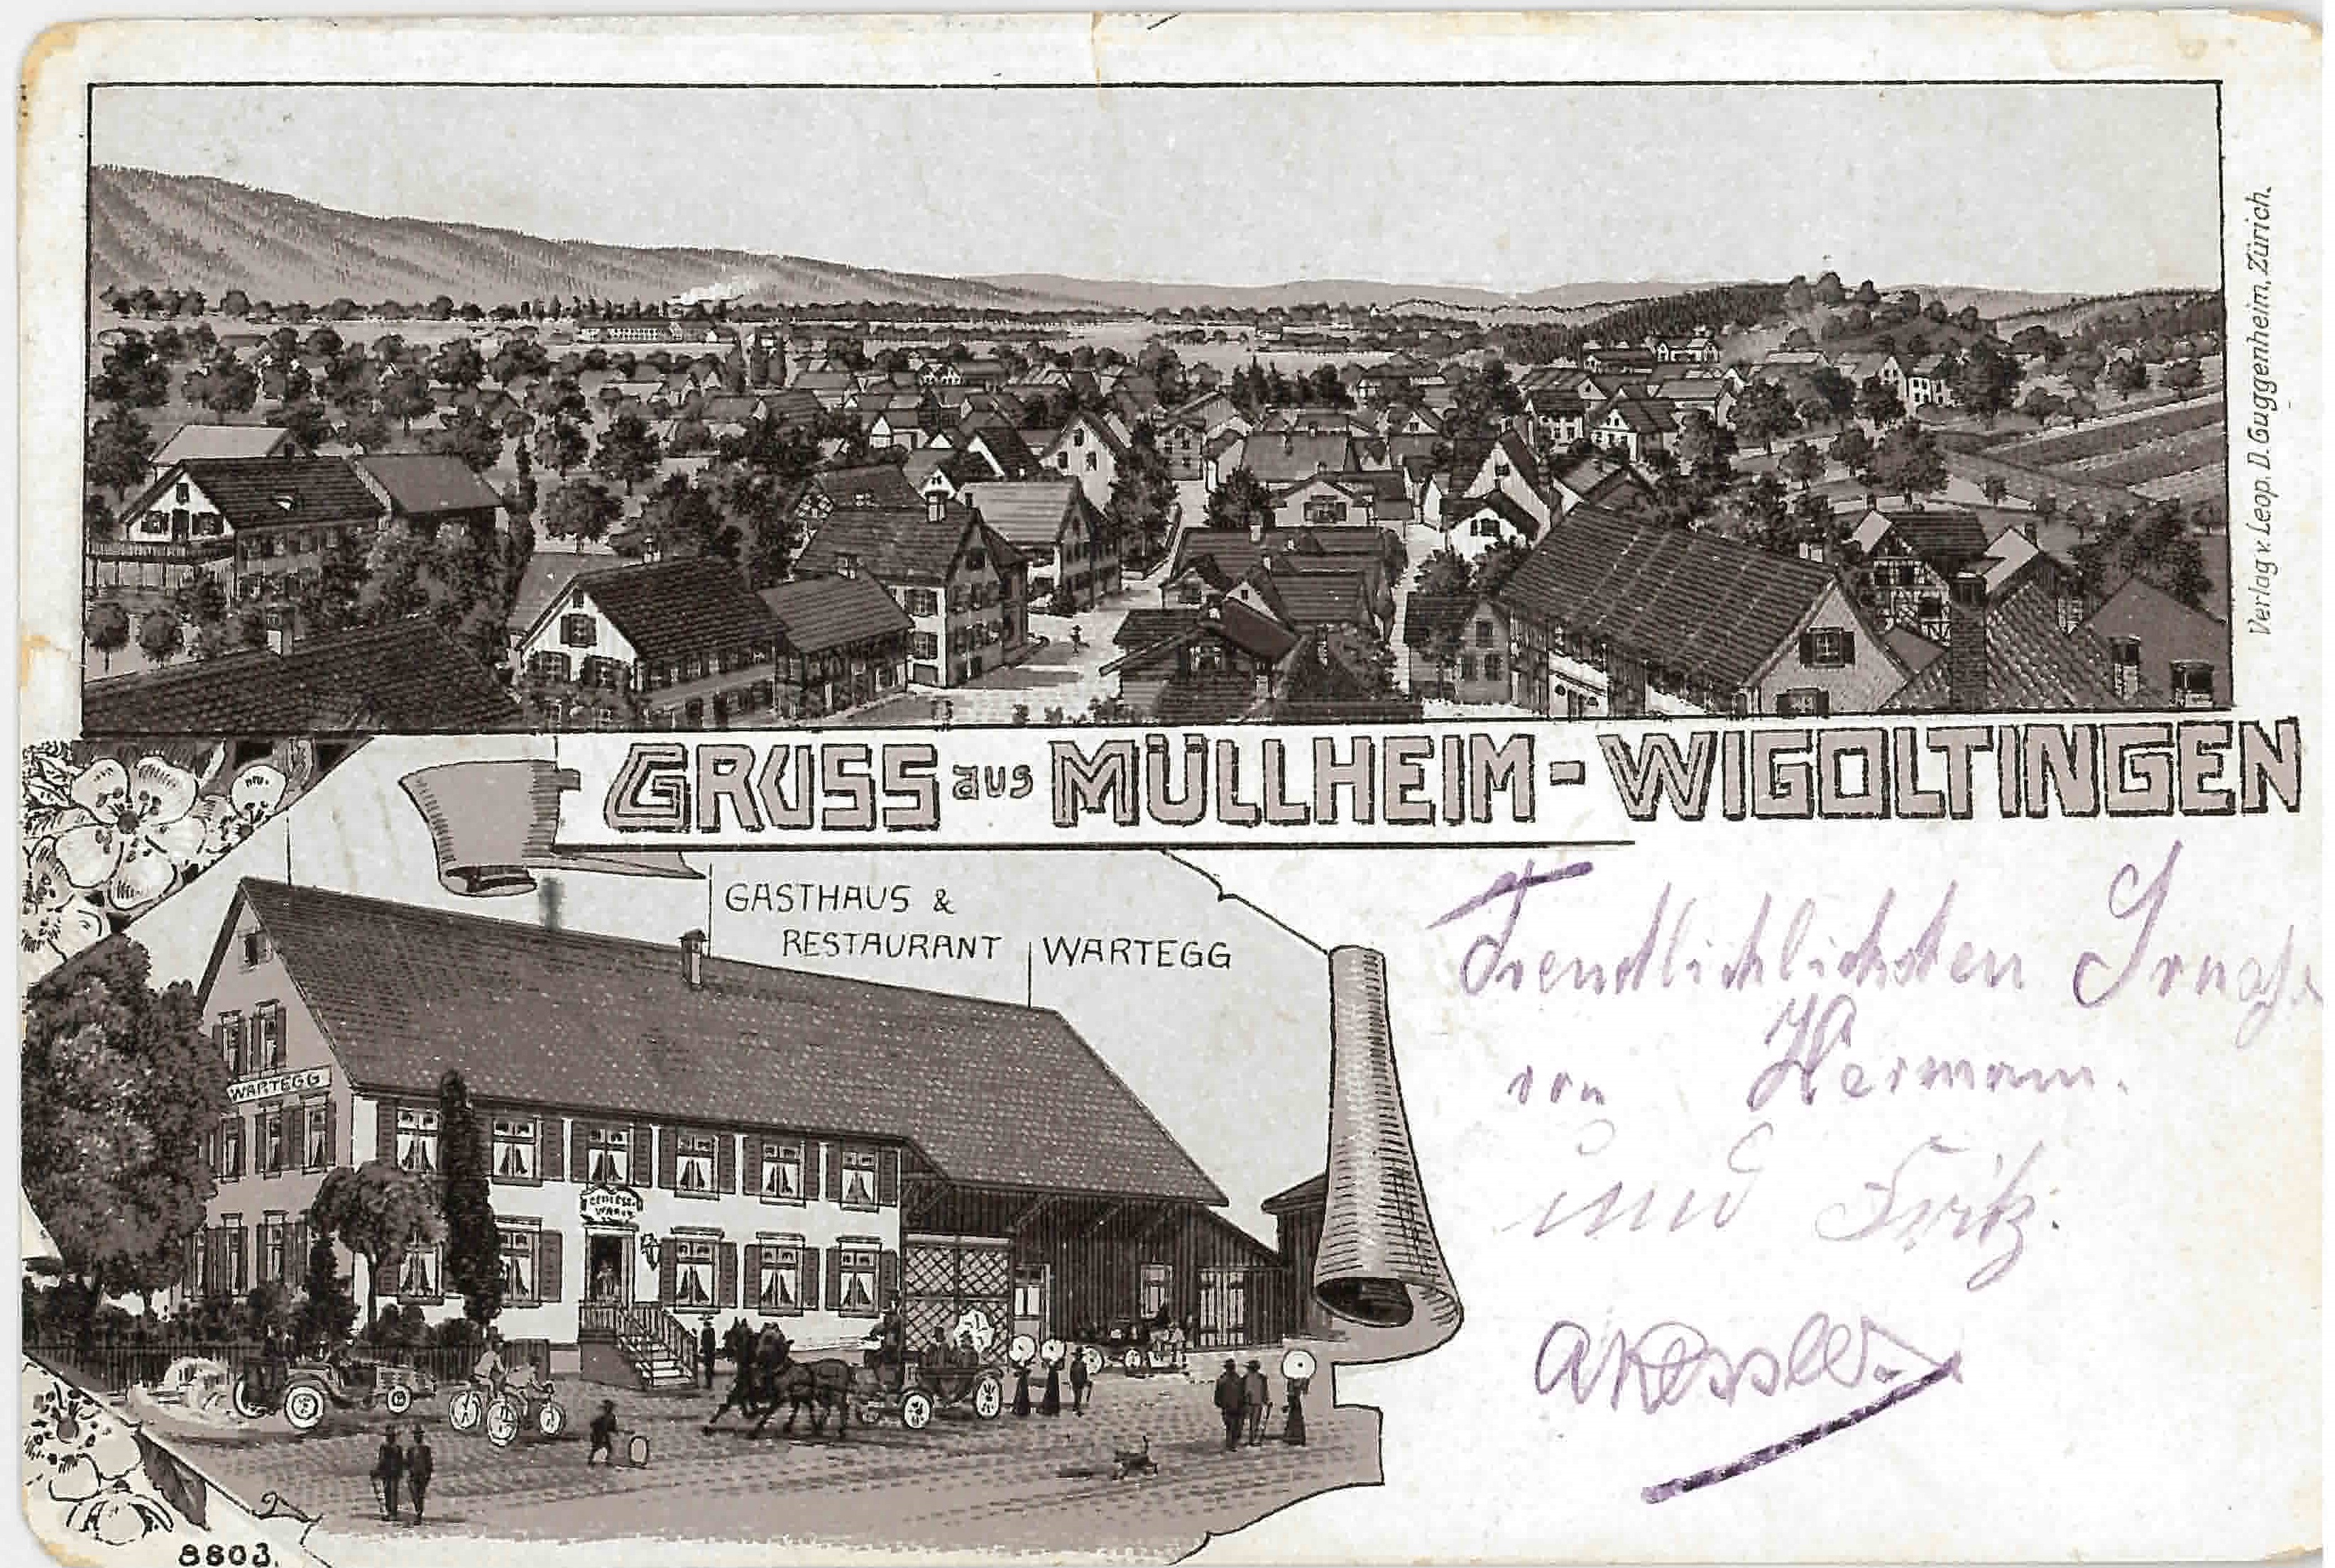 Verlag v. Leop. D. Guggenheim, Zürich.
GRUSS aus MÜLLHEIM-WIGOLTINGEN
GASTHAUS &
RESTAURANT WARTEGG
WARTEGG
von Hermann.
und Fritz.
AKessler
8803.